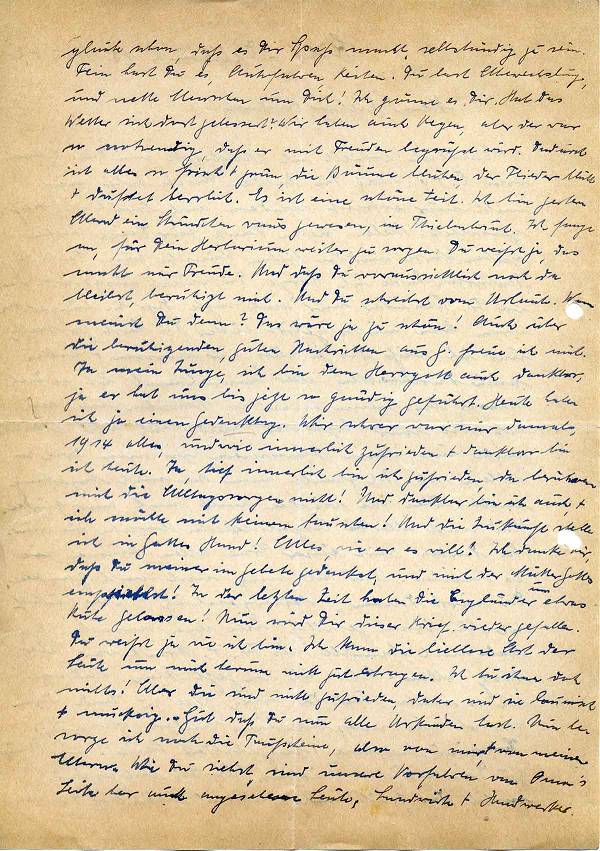 glücke schon, daß es Dir Spaß macht, selbständig zu sein.
Fein hast Du es, Autofahren kosten. Du hast Abwechslung,
und nette Menschen um Dich! Ich gönne es Dir. Hat das
Wetter sich dort gebessert? Wir haben auch Regen, aber der war
so notwendig, daß er mit Freuden begrüßt wird. Dadurch
ist alles so frisch + grün die Bäume blühen, der Flieder blüht
+ duftet herrlich. Es ist eine schöne Zeit. Ich bin gestern
Abend ein Stündchen raus gewesen, im Ich fange
an, für Dein Herbarium weiter zu sorgen. Du weißt ja, das
macht mir Freude. Und daß Du voraussichtlich noch da
bleibst, beruhigt mich. Und Du schreibst vom Urlaub. Wann
meinst Du denn? Das wäre ja zu schön! Auch über
die beruhigenden, guten Nachrichten aus G. freue ich mich.
Ja mein Junge, ich bin dem Herrgott auch dankbar,
ja er hat uns bis jetzt so gnädig geführt. Heute habe
ich ja einen Gedenktag. Wie schwer war mir damals,
1914 alles, und wie innerlich zufrieden + dankbar bin
ich heute. Ja, tief innerlich bin ich zufrieden da berühren
mich die Alltagssorgen nicht! Und dankbar bin ich auch, +
ich möchte mit keinem tauschen! Und die Zukunft stelle
ich in Gottes Hand! Alles wie er es will! Ich danke Dir,
daß Du meiner im Gebete gedenkst, und mich der Mutter Gottes
empfiehlst! In der letzten Zeit haben die Engländer uns etwas
Ruhe gelassen! Nun wird Dir dieser Brief wieder gefallen.
Du weißt ja wie ich bin. Ich kann die lieblose Art der
Leute um mich herum nicht gut ertragen. Ich tu ihnen doch
nichts! Aber die sind nicht zufrieden, daher sind sie launisch
+ Gut daß Du nun alle Urkunden hast. Nun be-
sorge ich noch die Taufscheine, also von mir + von meinen
Eltern. Wie Du siehst, sind unsere Vorfahren von Oma's
Seite her auch angesehene Leute, Landwirte + Handwerker.